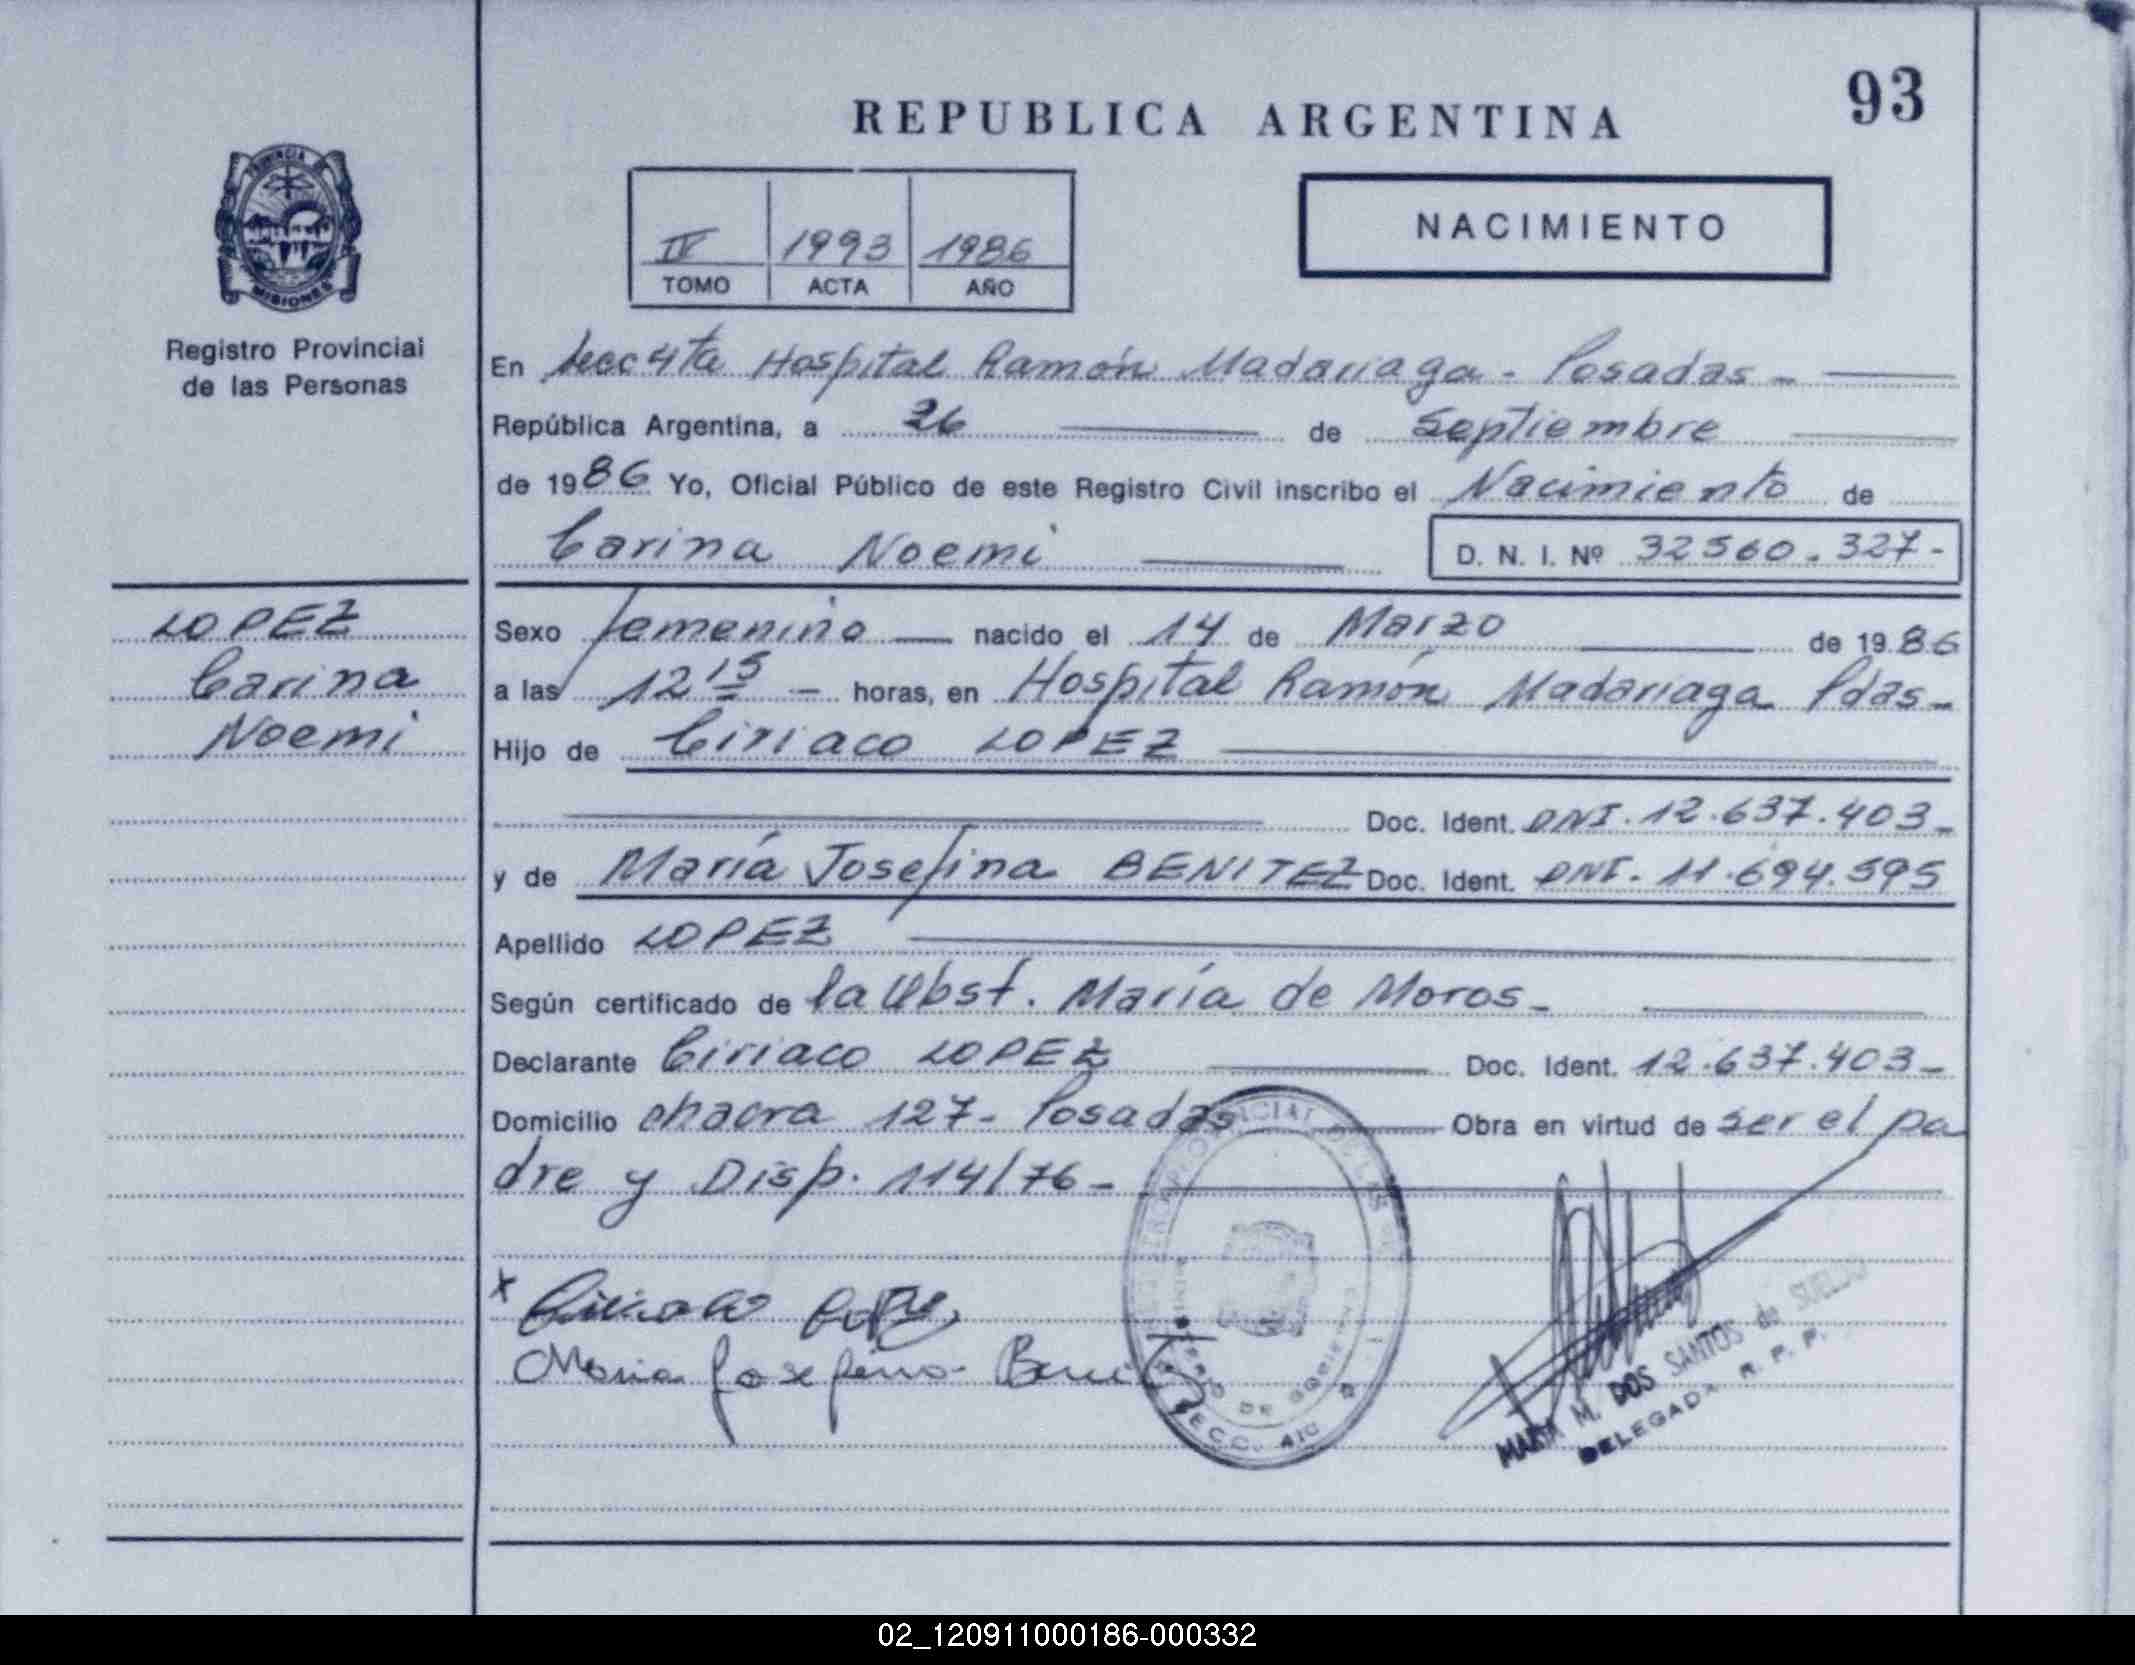 93
REPUBLICA ARGENTINA
PROVINCIA DE
MISIONES
Registro Provincial
de las Personas
IV 1993 1986
TOMO ACTA AÑO
NACIMIENTO
En Secc 4ta Hospital Ramón Madariaga - Posadas -
República Argentina, a 26 de Septiembre
de 1986 Yo, Oficial Público de este Registro Civil inscribo el Nacimiento de
Carina Noemi D. N. I. Nº 32560.327-
LOPEZ
Carina
Noemi
Sexo femenino nacido el 14 de Marzo de 1986
a las 12 15 - horas, en Hospital Ramón Madariaga Pdas-
Hijo de Ciriaco LOPEZ
Doc. Ident. DNI. 12.637.403-
y de María Josefina BENITEZ Doc. Ident. DNI. 11.694.595
Apellido LOPEZ
Según certificado de la Obst. María de Moros-
Declarante Ciriaco LOPEZ Doc. Ident. 12.637.403-
Domicilio chacra 127- Posadas Obra en virtud de ser el pa
dre y Disp. 114/76-
x Ciriaco Lopez
Maria Josefina Benitez
MARIA M. DOS SANTOS de
DELEGADA R. P. P.
02_120911000186-000332